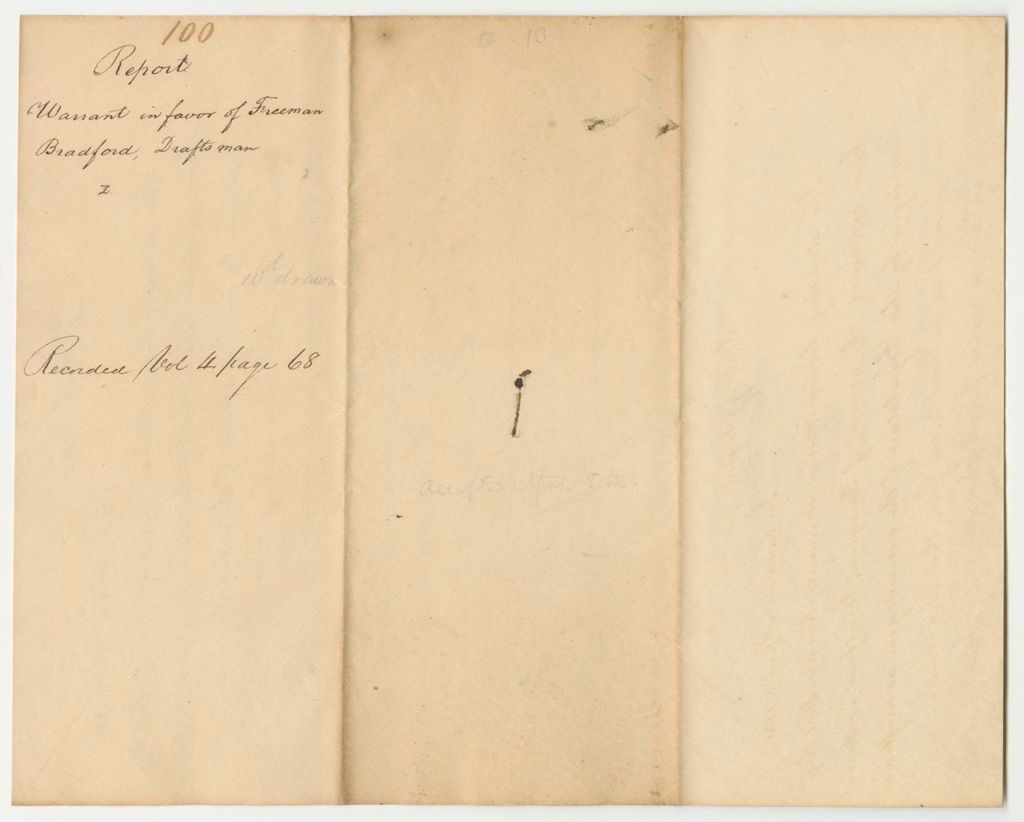 100
Report
Warrant in favor of Freeman
Bradford, Draftsman
x
wt drawn
Recorded Vol 4 page 68
13
accepted April